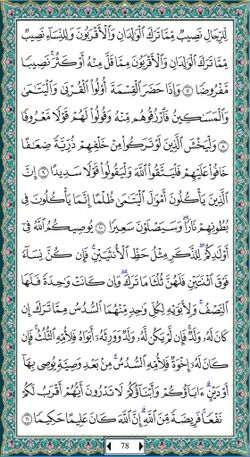 لِّلرِّجَالِ نَصِيبٌ مِّمَّا تَرَكَ الْوَالِدَانِ وَالْأَقْرَبُونَ وَلِلنِّسَاءِ نَصِيبٌ
مِّمَّا تَرَكَ الْوَالِدَانِ وَالْأَقْرَبُونَ مِمَّا قَلَّ مِنْهُ أَوْ كَثُرَ ۚ نَصِيبًا
مَّفْرُوضًا ٧ وَإِذَا حَضَرَ الْقِسْمَةَ أُولُو الْقُرْبَىٰ وَالْيَتَامَىٰ
وَالْمَسَاكِينُ فَارْزُقُوهُم مِّنْهُ وَقُولُوا لَهُمْ قَوْلًا مَّعْرُوفًا
٨ وَلْيَخْشَ الَّذِينَ لَوْ تَرَكُوا مِنْ خَلْفِهِمْ ذُرِّيَّةً ضِعَافًا
خَافُوا عَلَيْهِمْ فَلْيَتَّقُوا اللَّهَ وَلْيَقُولُوا قَوْلًا سَدِيدًا ٩ إِنَّ
الَّذِينَ يَأْكُلُونَ أَمْوَالَ الْيَتَامَىٰ ظُلْمًا إِنَّمَا يَأْكُلُونَ فِي
بُطُونِهِمْ نَارًا ۖ وَسَيَصْلَوْنَ سَعِيرًا ١٠ يُوصِيكُمُ اللَّهُ فِي
أَوْلَادِكُمْ ۖ لِلذَّكَرِ مِثْلُ حَظِّ الْأُنثَيَيْنِ ۚ فَإِن كُنَّ نِسَاءً
فَوْقَ اثْنَتَيْنِ فَلَهُنَّ ثُلُثَا مَا تَرَكَ ۖ وَإِن كَانَتْ وَاحِدَةً فَلَهَا
النِّصْفُ ۚ وَلِأَبَوَيْهِ لِكُلِّ وَاحِدٍ مِّنْهُمَا السُّدُسُ مِمَّا تَرَكَ إِن
كَانَ لَهُ وَلَدٌ ۚ فَإِن لَّمْ يَكُن لَّهُ وَلَدٌ وَوَرِثَهُ أَبَوَاهُ فَلِأُمِّهِ الثُّلُثُ ۚ فَإِن
كَانَ لَهُ إِخْوَةٌ فَلِأُمِّهِ السُّدُسُ ۚ مِن بَعْدِ وَصِيَّةٍ يُوصِي بِهَا
أَوْ دَيْنٍ ۗ آبَاؤُكُمْ وَأَبْنَاؤُكُمْ لَا تَدْرُونَ أَيُّهُمْ أَقْرَبُ لَكُمْ
نَفْعًا ۚ فَرِيضَةً مِّنَ اللَّهِ ۗ إِنَّ اللَّهَ كَانَ عَلِيمًا حَكِيمًا ١١
78